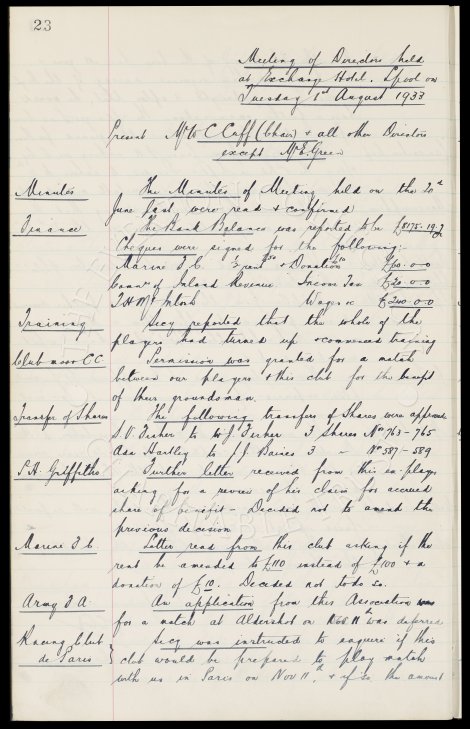 23
Meeting of Directors held
at Exchange Hotel. Lpool on
Tuesday 1st August 1933
Present Mr W C Cuff (Chair) & all other Directors
except Mr E. Green
Minutes The Minutes of Meeting held on the 20th
June last were read & confirmed
Finance The Bank Balance was reported to be £8175.19.7
Cheques were signed for the following:
Marine F C. & Donation £60.0.0
Commrs of Inland Revenue Income Tax £20.0.0
T H McIntosh Wages a/c £240.0.0
Training Secy reported that the whole of the
players had turned up & commenced training
Clubmoor CC Permission was granted for a match
between our players & this club for the benefit
of their groundsman.
Transfer of Shares The following transfers of Shares were approved
S. V. Fisher to W. J. Fisher 3 Shares Nos 763-765
Ada Hartley to J. J. Baines 3 - Nos 587-589
P.H. Griffiths Further letter received from this ex-player
asking for a review of his claim for accrued
share of benefit - Decided not to amend the
previous decision
Marine F C. Letter read from this club asking if the
rent be amended to £110 instead of £100 & a
donation of £10. Decided not to do so.
Army F A An application from this Association
for a match at Aldershot on 11th was deferred
Racing Club Secy was instructed to enquire if this
de Paris club would be prepared to play match
with us in Paris on Nov 11th & if so the amount